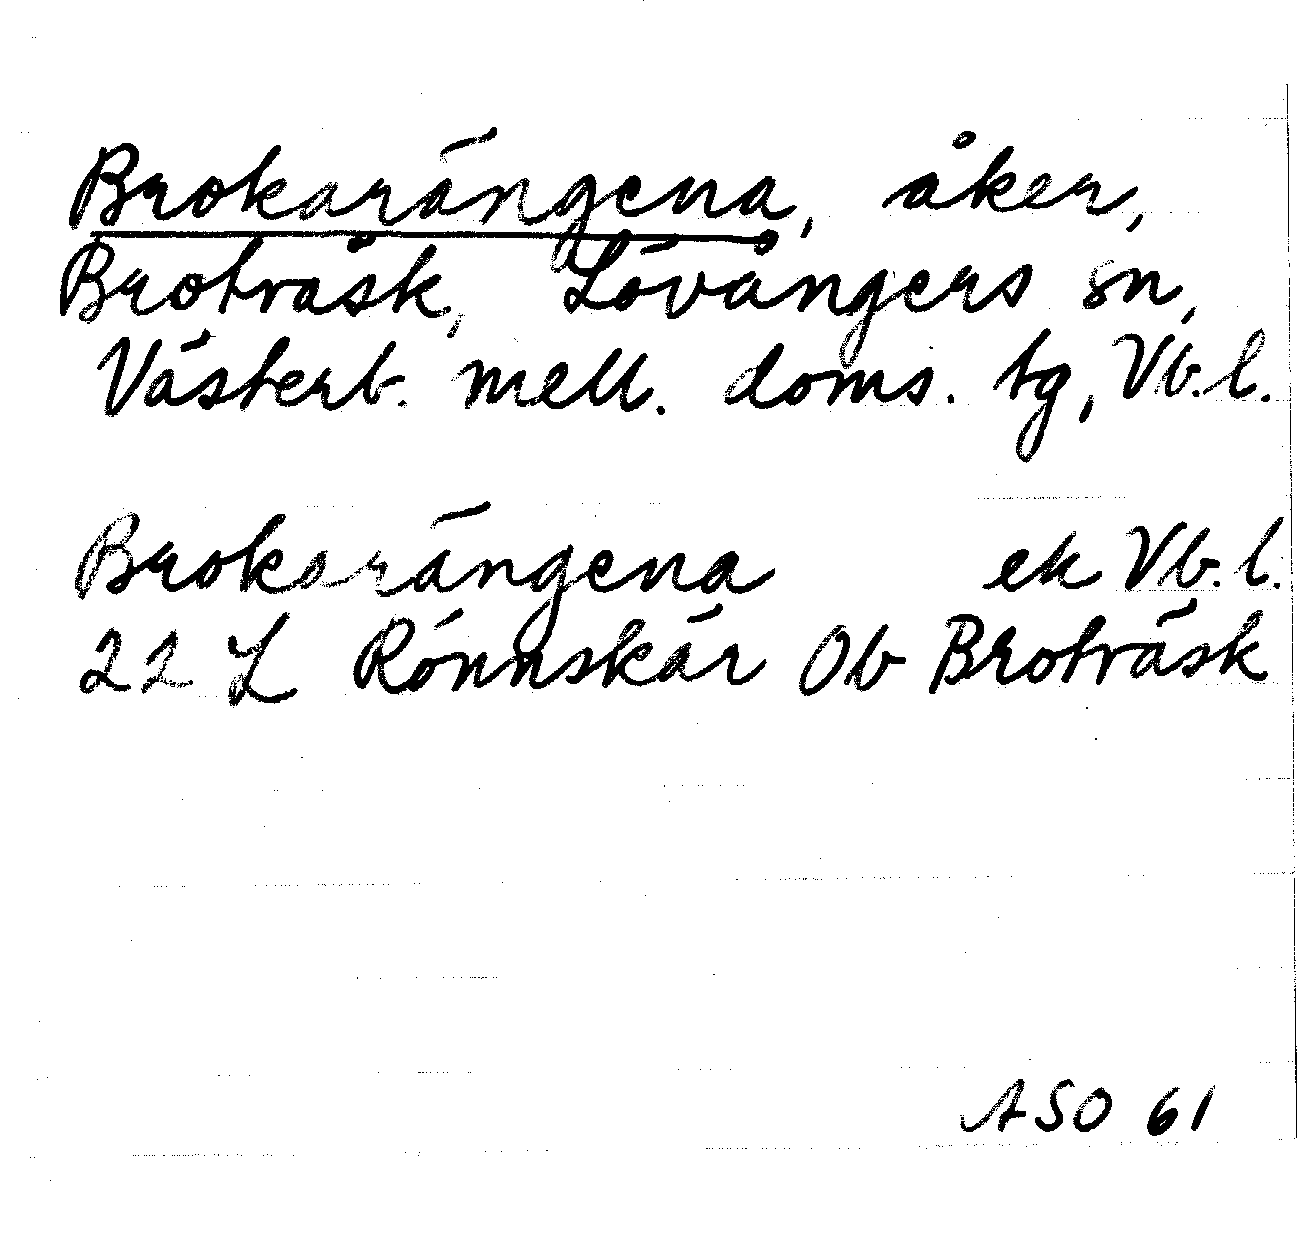 Brokarängena, åker,
Broträsk, Lövångers sn,
Västerb. mell. doms. tg, Vb. l.
Brokarängena ek Vb. l.
22 L Rönnskär Ob Broträsk
ASO 61